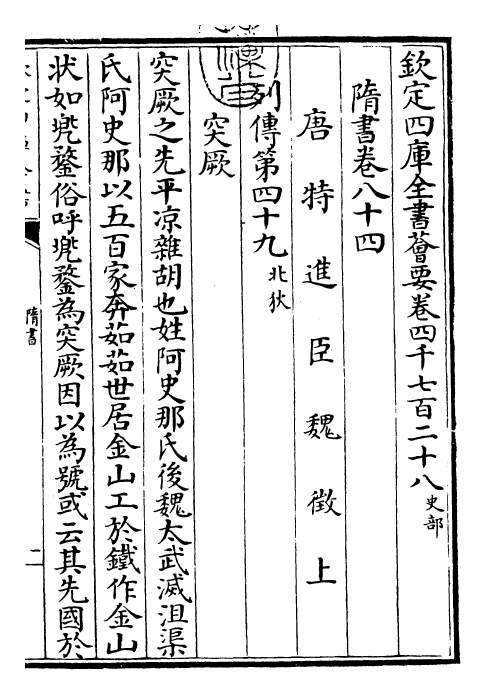 欽定四庫全書薈要卷四千七百二十八史部
隋書卷八十四
唐特進臣魏徵上
列傳第四十九北狄
突厥
突厥之先平凉雜胡也姓阿史那氏後魏太武滅沮渠
氏阿史那以五百家奔茹茹世居金山工於鐵作金山
状如兠鍪俗呼兠鍪為突厥因以為號或云其先國於
隋書